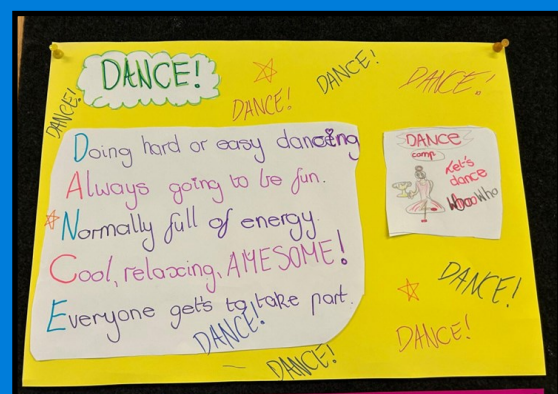 DANCE!
DANCE!
DANCE!
DANCE!
DANCE!
Doing hard or easy dancing
Always going to be fun.
Normally full of energy.
Cool, relaxing, AWESOME!
Everyone gets to take part.
DANCE
camp
Let's
dance
WhooWho
DANCE!
DANCE!
DANCE!
DANCE!